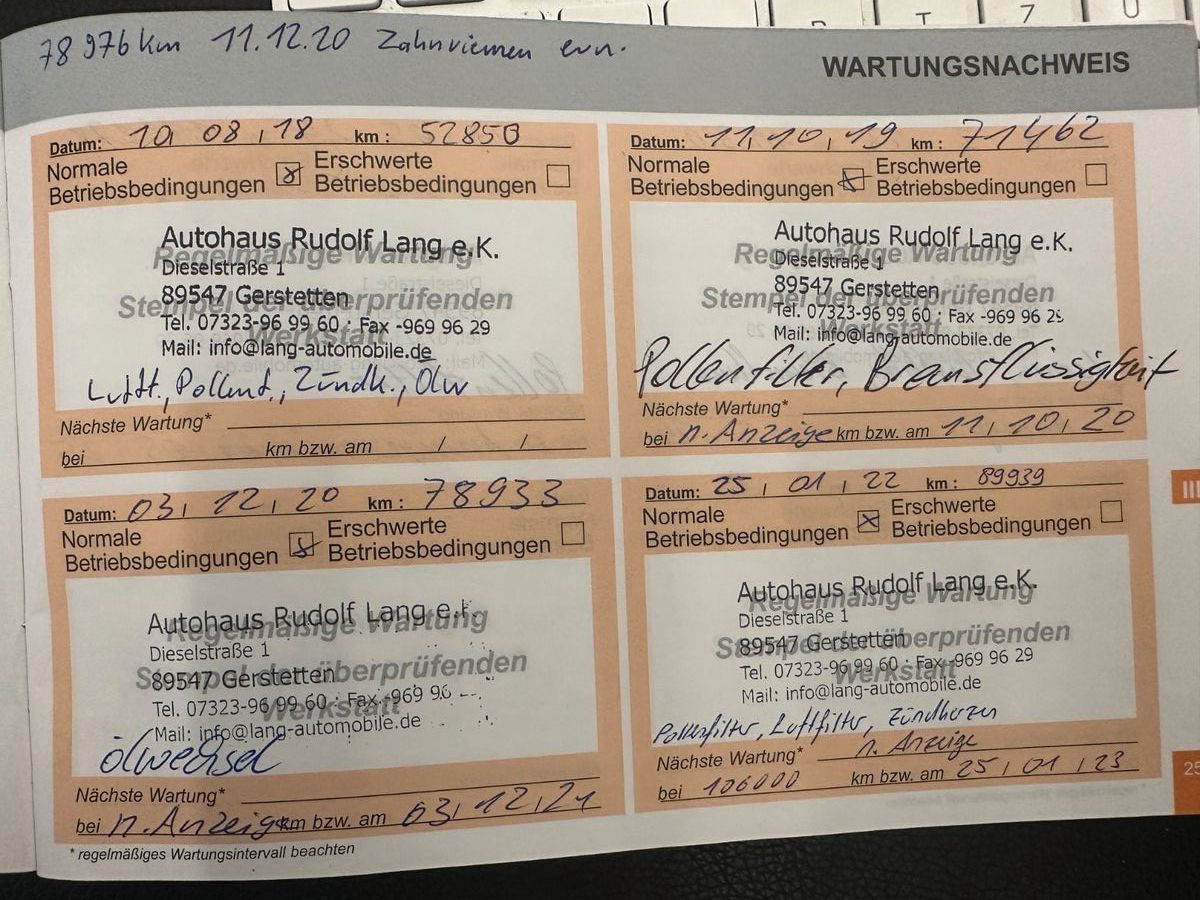 78 976 km 11.12.20 Zahnriemen ern.
WARTUNGSNACHWEIS
Datum: 10, 08, 18 km: 52850
Normale Betriebsbedingungen
Erschwerte Betriebsbedingungen
Regelmäßige Wartung
Stempel der überprüfenden
Werkstatt
Autohaus Rudolf Lang e.K.
Dieselstraße 1
89547 Gerstetten
Tel. 07323-96 99 60 · Fax -969 96 29
Mail: info@lang-automobile.de
Luftf., Pollenf., Zündk., Ölw
Nächste Wartung*
bei km bzw. am / /
Datum: 11, 10, 19 km: 71462
Normale Betriebsbedingungen
Erschwerte Betriebsbedingungen
Regelmäßige Wartung
Stempel der überprüfenden
Werkstatt
Autohaus Rudolf Lang e.K.
Dieselstraße 1
89547 Gerstetten
Tel. 07323-96 99 60 · Fax -969 96 29
Mail: info@lang-automobile.de
Pollenfilter, Bremsflüssigkeit
Nächste Wartung*
bei n. Anzeige km bzw. am 11, 10, 20
Datum: 03, 12, 20 km: 78933
Normale Betriebsbedingungen
Erschwerte Betriebsbedingungen
Regelmäßige Wartung
Stempel der überprüfenden
Werkstatt
Autohaus Rudolf Lang e.K.
Dieselstraße 1
89547 Gerstetten
Tel. 07323-96 99 60 · Fax -969 96
Mail: info@lang-automobile.de
Ölwechsel
Nächste Wartung*
bei n. Anzeige km bzw. am 03, 12, 21
* regelmäßiges Wartungsintervall beachten
Datum: 25, 01, 22 km: 89939
Normale Betriebsbedingungen
Erschwerte Betriebsbedingungen
Regelmäßige Wartung
Stempel der überprüfenden
Werkstatt
Autohaus Rudolf Lang e.K.
Dieselstraße 1
89547 Gerstetten
Tel. 07323-96 99 60 · Fax -969 96 29
Mail: info@lang-automobile.de
Pollenfilter, Luftfilter, Zündkerzen
Nächste Wartung* n. Anzeige
bei 106000 km bzw. am 25, 01, 23
III
25